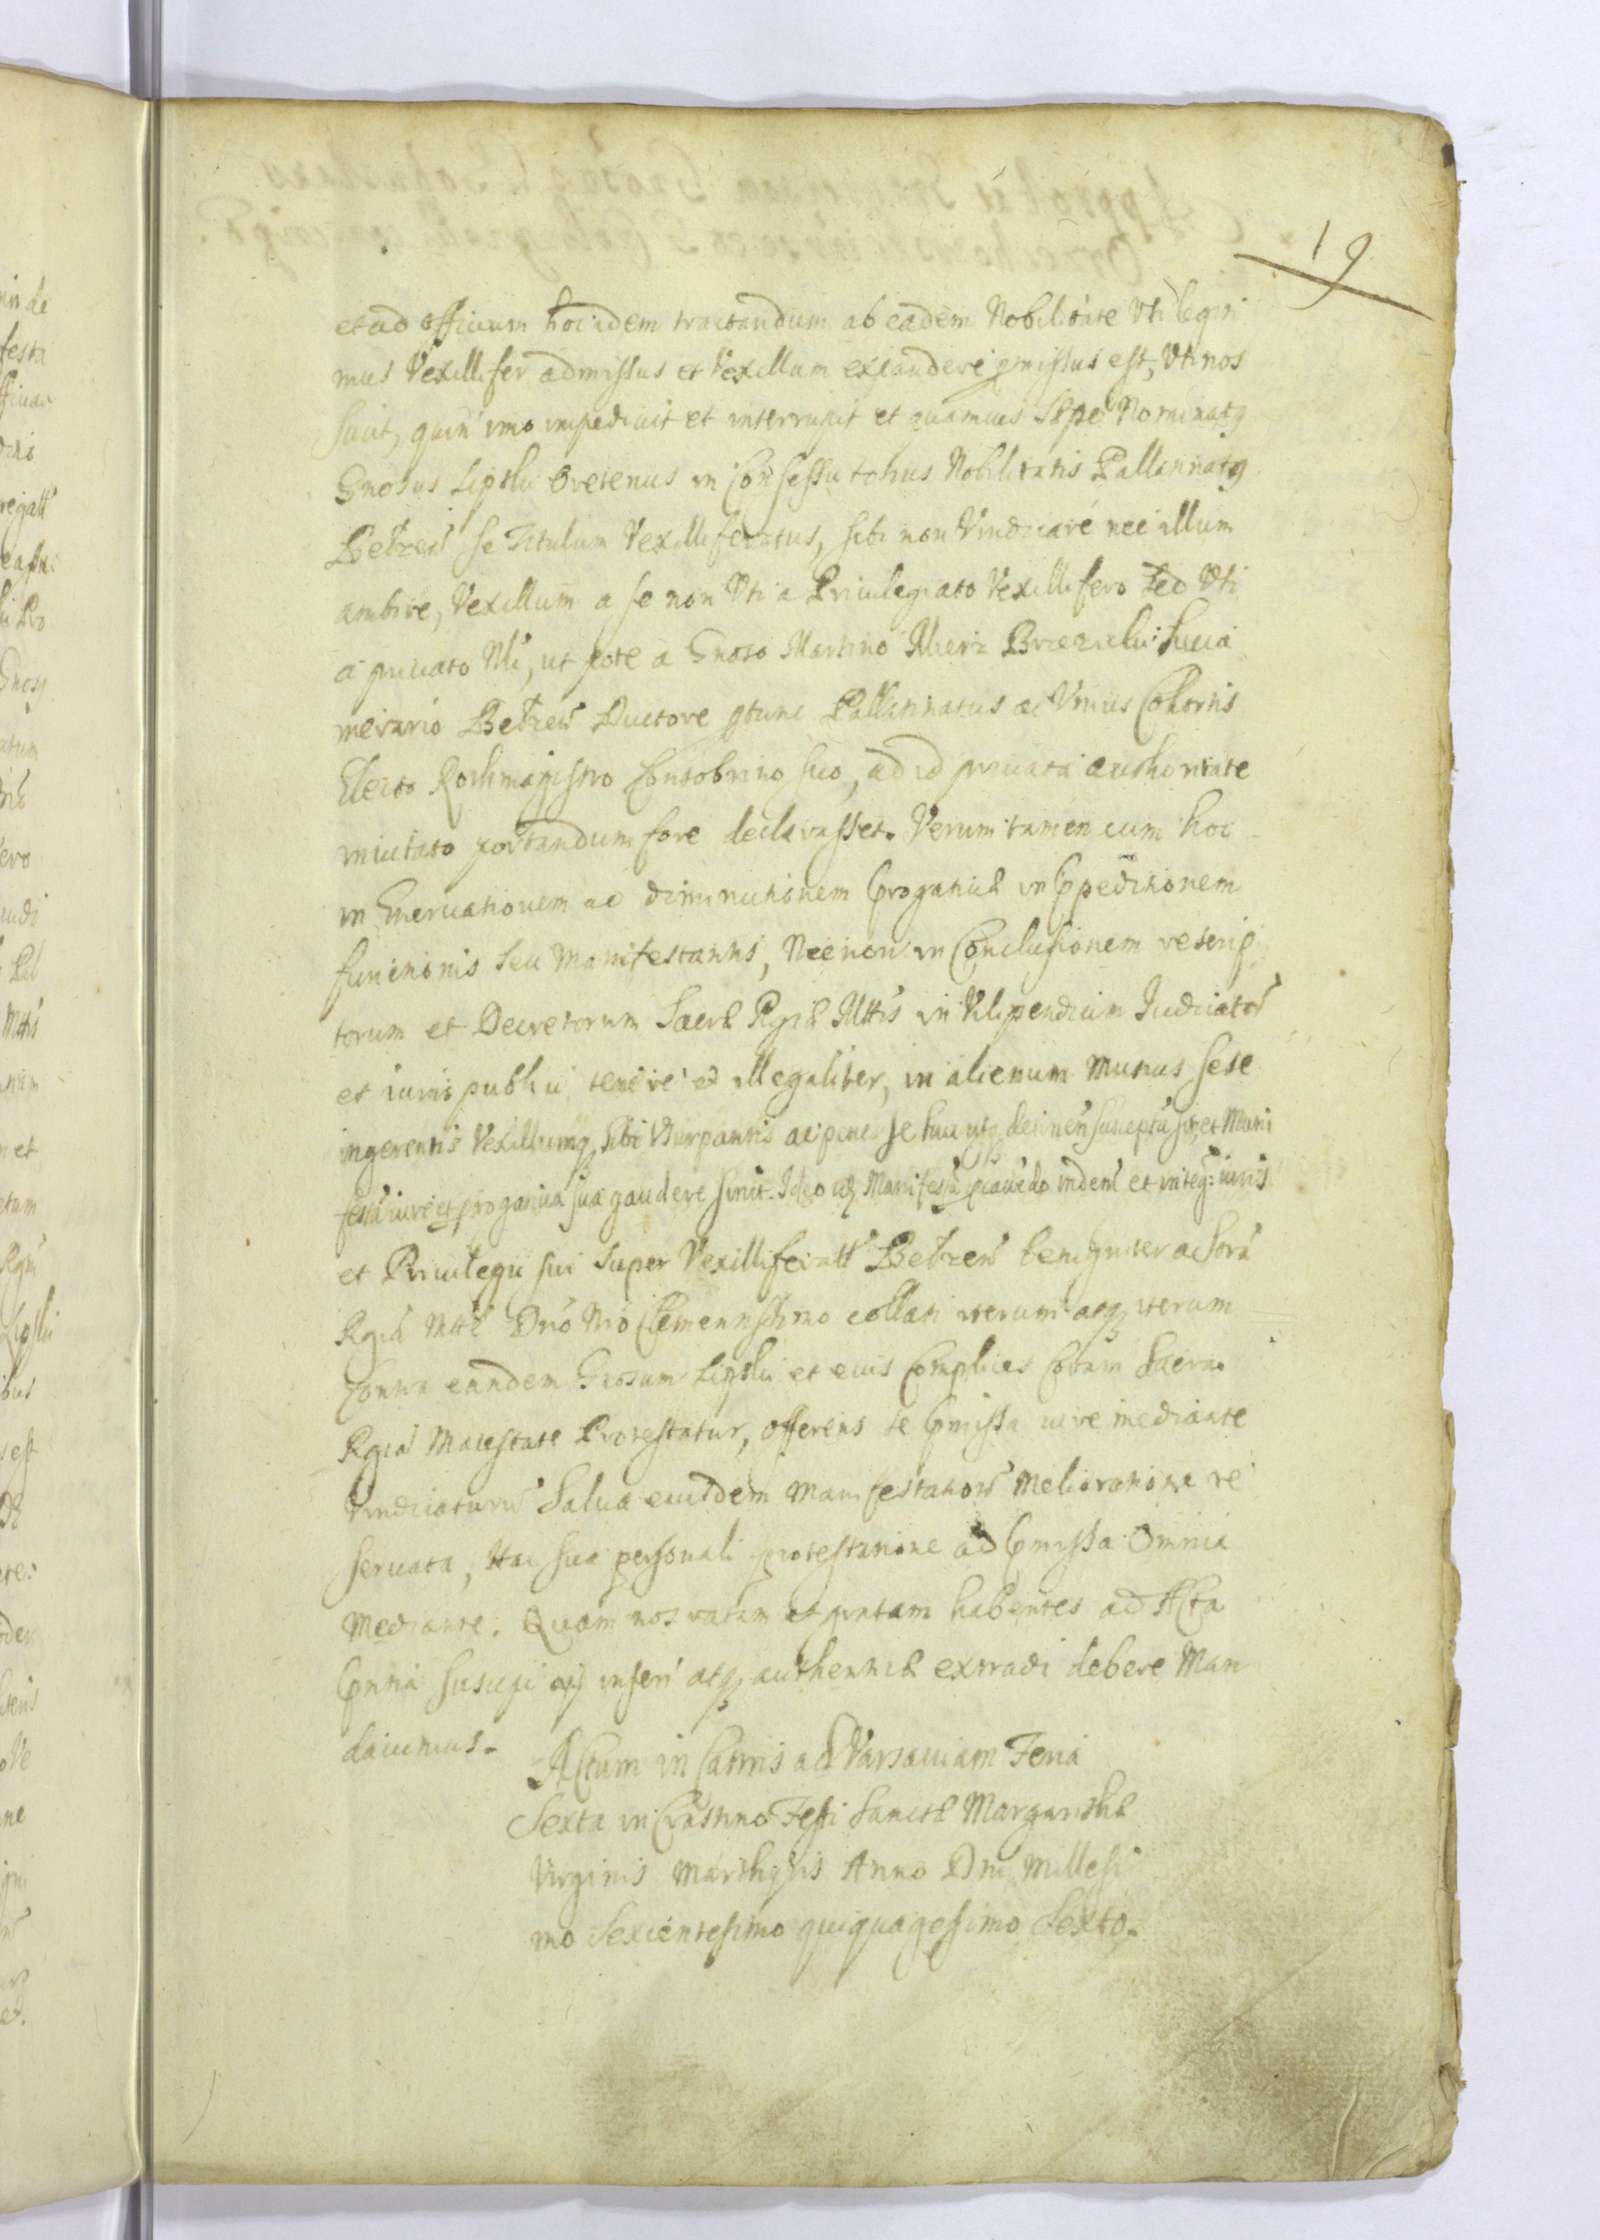 19
et ad officium hoc idem tractandum ab eadem Nobilitate Uti legiti
mus Vexillifer admissus et Vexillum expandere pmissus est, Uti nos
suit, quin imo impedivit et interrupit et quamvis Sępe Nominatq
Gnosus Lipski Oretenus in Consessu totius Nobilitatis Pallatinatq
Belzen se Titulum Vexilliferatus, sibi non Vindicare nec illum
ambire, Vexillum a se non Uti a Privilegiato Vexillifero Sed Uti
a privato Mi, ut pote a Gnoso Martino Mierz Brzezicki Succa
merario Belzen Ductore ptunc Pallatinatus ac Unius Cohortis
Electo Rothmagistro Consobrino suo, ad id privata authoritate
invitato portandum fore declarasset. Verumtamen cum hoc
in Enervationem ac diminutionem progativę in Cppeditionem
functionis seu Manifestantis, Necnon in Conclusionem rescrip
torum et Decretorum Sacrę Rgię Mttis in Vilipendium Iudicator
et iuris publici temere et illegaliter, in alienum Munus sese
ingerentis Vexillumq sibi Usurpantis ac penes se huc usq detinen susceptu sit, et Mani
festan iure et progativa sua gaudere sinit. Ideo idq Manifestan pcavendo indemt et integ: iuris
et Privilegii sui super Vexilliferatt Belzen benigniter a Sacra
Rgia Mtte Dno Nro Clementissimo collati iterum atq iterum
Contra eundem Gnosum Lipski et eius Complices Coram Sacra
Rgia Maiestate Protestatur, offerens se pmissa iure mediante
Vindicaturu Salva eiusdem Manifestations Melioratione re
servata, Hac sua personali protestatione ad pmissa Omnia
Mediante. Quam nos ratam et gratam habentes ad Acta
pntia suscipi ac inseri atq authenticę extradi debere Man
davimus.
Actum in Castris ad Varsaviam Feria
Sexta in Crastino Festi Sanctę Margarithę
Virginis Marthyris Anno Dni Millesi
mo Sexcentesimo quiquagesimo Sexto.